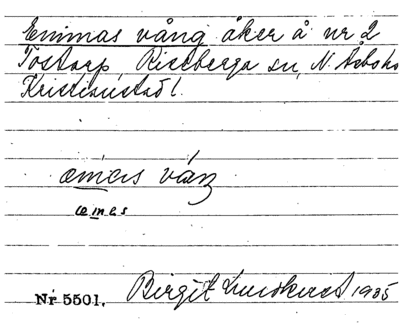 Emmas vång åker å nr 2
Tostarp Riseberga sn, N. Åsbo hd
Kristianstad l.
æmas váŋ
æmes
Nr 5501. Birgit Lundkvist 1935